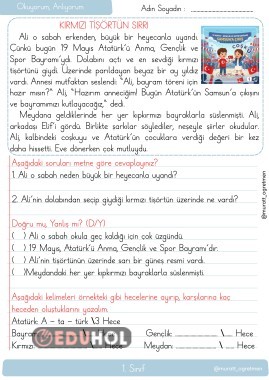 Okuyorum, Anlıyorum
Adın Soyadın :
KIRMIZI TİŞÖRTÜN SIRRI
Ali o sabah erkenden, büyük bir heyecanla uyandı.
Çünkü bugün 19 Mayıs Atatürk'ü Anma, Gençlik ve
Spor Bayramı'ydı. Dolabını açtı ve en sevdiği kırmızı
tişörtünü giydi. Üzerinde parıldayan beyaz bir ay yıldız
vardı. Annesi mutfaktan seslendi: "Ali, bayram töreni için
hazır mısın?" Ali, "Hazırım anneciğim! Bugün Atatürk'ün Samsun'a çıkışını
ve bayramımızı kutlayacağız," dedi.
Meydana geldiklerinde her yer kıpkırmızı bayraklarla süslenmişti. Ali,
arkadaşı Elif'i gördü. Birlikte şarkılar söylediler, neşeyle şiirler okudular.
Ali, kalbindeki coşkuyu ve Atatürk'ün çocuklara verdiği değeri bir kez
daha hissetti. Eve dönerken çok mutluydu.
Aşağıdaki soruları metne göre cevaplayınız?
1. Ali o sabah neden büyük bir heyecanla uyandı?
2. Ali'nin dolabından seçip giydiği kırmızı tişörtün üzerinde ne vardı?
Doğru mu, Yanlış mı? (D/Y)
( ) Ali o sabah okula geç kaldığı için çok üzgündü.
( ) 19 Mayıs, Atatürk'ü Anma, Gençlik ve Spor Bayramı'dır.
( ) Ali'nin tişörtünün üzerinde sarı bir güneş resmi vardı.
( )Meydandaki her yer kıpkırmızı bayraklarla süslenmişti.
Aşağıdaki kelimeleri örnekteki gibi hecelerine ayırıp, karşılarına kaç
heceden oluştuklarını yazalım.
Atatürk: A – ta – türk \3 Hece
Gençlik: \ Hece
Kırmızı Meydan: \ Hece
EDUHOL
1. Sınıf
@murat1_ogretmen